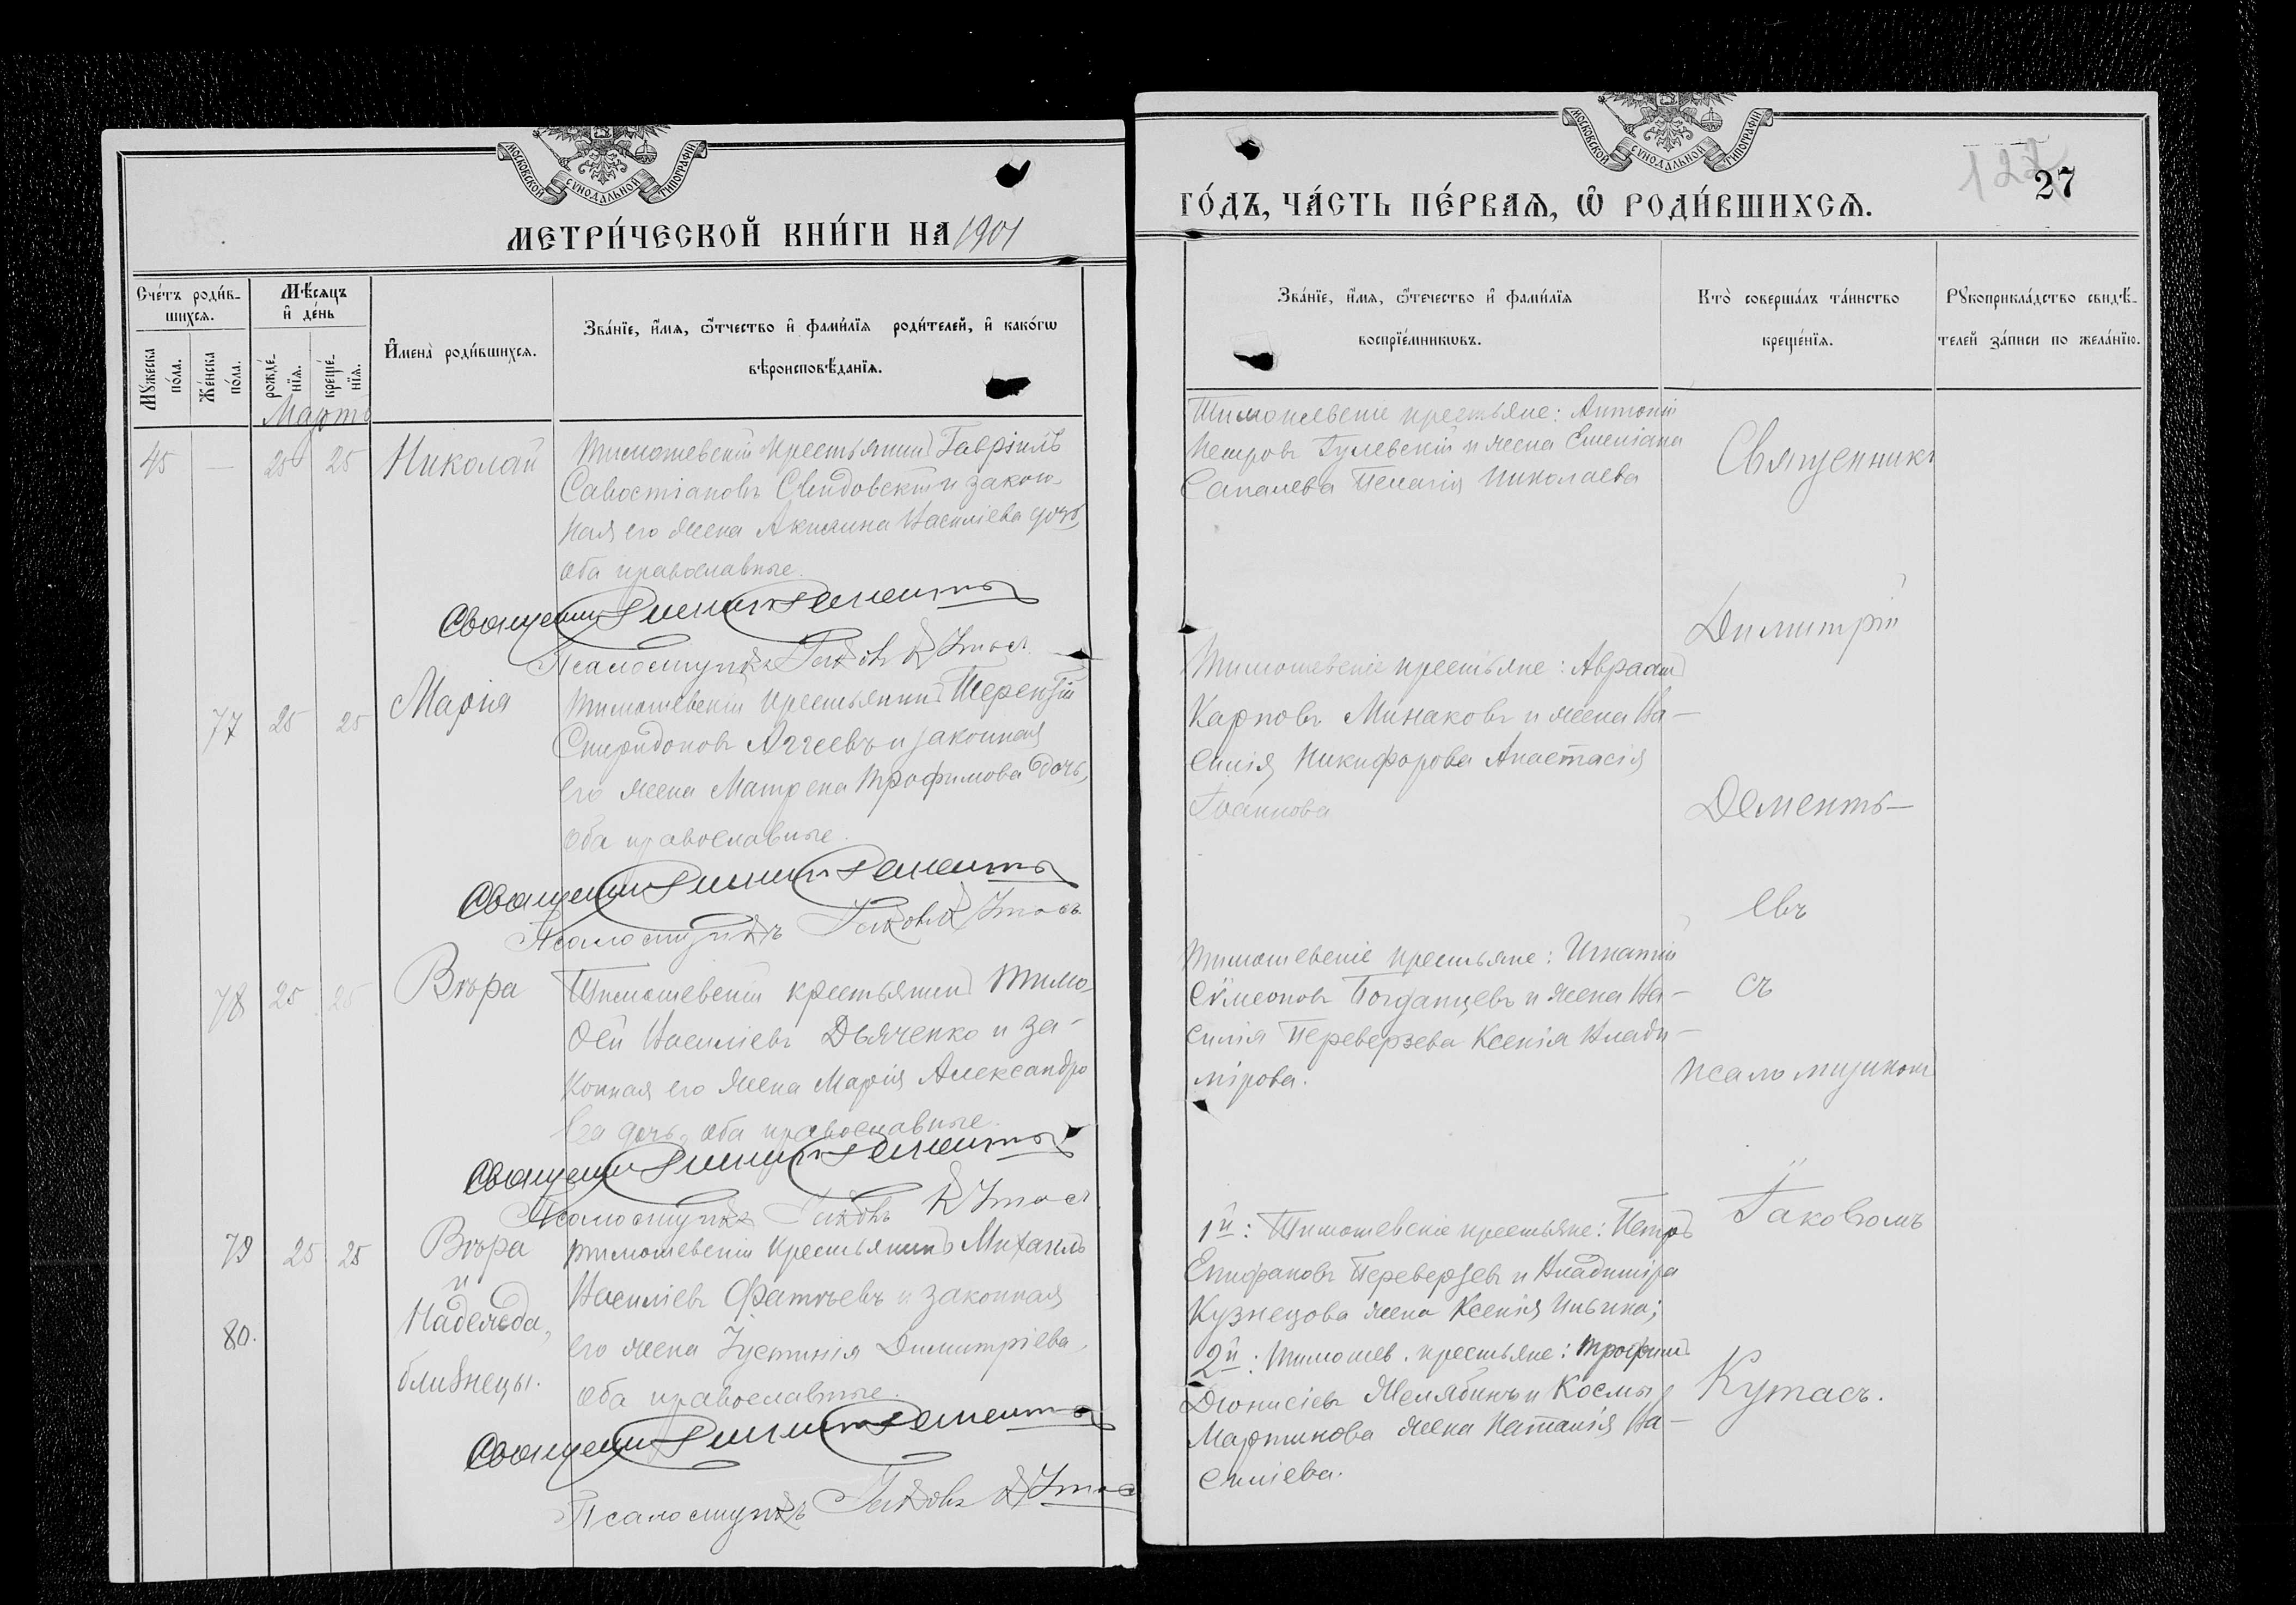 МОСКОВСКОЙ СУНОДАЛЬНОЙ ТИПОГРАФІИ
МЕТРИ́ЧЕСКОЙ КНИ́ГИ НА 1901
Сче́тъ роди́в-
шихся.
Мѣ́сяцъ
и҆ де́нь
Мꙋ́жеска
по́ла.
Же́нска
по́ла.
рожде́-
нїя.
креще́-
нїя.
И҆мена̀ роди́вшихся.
Зва́нїе, и҆́мя, ѻ҆́тчество и҆ фами́лїя роди́телей, и҆ како́гѡ
вѣроисповѣ́данїя.
Мартъ
45 — 25 25 Николай
Тимошевскій крестьянинъ Гавріилъ
Савостіановъ Свидовскій и закон-
ная его жена Акилина Василіева дочь,
оба православные.
Священникъ Димитрій Дементьевъ
Псаломщикъ Іаковъ Кутасъ
77 25 25 Марія
Тимошевскій крестьянинъ Терентій
Спиридоновъ Аггеевъ и законная
его жена Матрена Трофимова дочь,
оба православные.
Священникъ Димитрій Дементьевъ
Псаломщикъ Іаковъ Кутасъ
78 25 25 Вѣра
Тимошевскій крестьянинъ Тимо-
ѳей Василіевъ Дьяченко и за-
конная его жена Марія Александро
ва дочь, оба православные.
Священникъ Димитрій Дементьевъ
Псаломщикъ Іаковъ Кутасъ
79 25 25 Вѣра
и
80. Надежда,
близнецы.
Тимошевскій крестьянинъ Михаилъ
Василіевъ Фатѣевъ и законная
его жена Іустинія Димитріева,
оба православные.
Священникъ Димитрій Дементьевъ
Псаломщикъ Іаковъ Кутасъ
МОСКОВСКОЙ СУНОДАЛЬНОЙ ТИПОГРАФІИ
27
ГО́ДЪ, ЧА́СТЬ ПЕ́РВАЯ, Ѽ РОДИ́ВШИХСЯ.
Зва́нїе, и҆́мя, ѻ҆́течество и҆ фами́лїя
воспрїе́мникѡвъ.
Кто̀ соверша́лъ та́инство
креще́нїя.
Рꙋкоприкла́дство свидѣ́-
телей за́писи по жела́нїю.
Тимошевскіе крестьяне: Антоній
Петровъ Гулевскій и жена Емеліана
Сапалева Пелагія Николаева
Тимошевскіе крестьяне: Авраамъ
Карповъ Минаковъ и жена Ва-
силія Никифорова Анастасія
Іоаннова
Тимошевскіе крестьяне: Игнатій
Сѵмеоновъ Богданцевъ и жена Ва-
силія Переверзева Ксенія Влади-
мірова.
1й: Тимошевскіе крестьяне: Петръ
Епифановъ Переверзевъ и Владиміра
Кузнецова жена Ксенія Ильина;
2й: Тимошев. крестьяне: Трофимъ
Діонисіевъ Желябинъ и Космы
Мартинова жена Наталія Ва-
силіева.
Священникъ
Димитрій
Дементь-
евъ
съ
псаломщикомъ
Іаковомъ
Кутасъ.